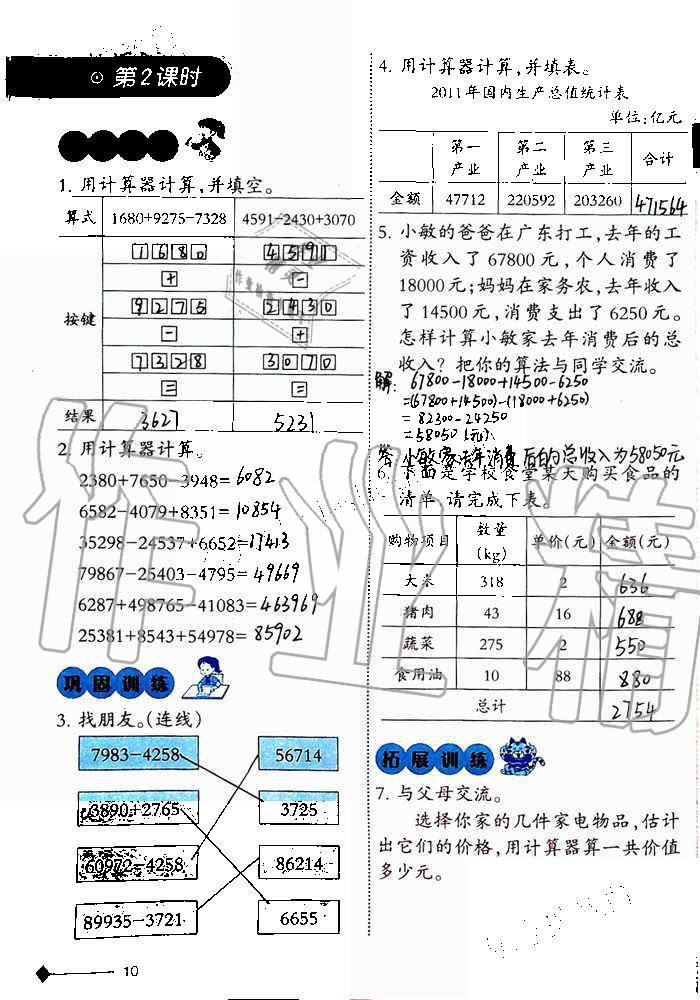 第2课时
1. 用计算器计算,并填空。
算式 1680+9275-7328 4591-2430+3070
按键
1680 4591
+ -
9275 2430
- +
7328 3070
= =
结果 3627 5231
2. 用计算器计算。
2380+7650-3948=6082
6582-4079+8351=10854
35298-24537+6652=17413
79867-25403-4795=49669
6287+498765-41083=463969
25381+8543+54978=85902
巩固训练
3. 找朋友。(连线)
7983-4258 56714
3890+2765 3725
60972-4258 86214
89935-3721 6655
10
4. 用计算器计算,并填表。
2011年国内生产总值统计表
单位:亿元
第一产业 第二产业 第三产业 合计
金额 47712 220592 203260 471564
5. 小敏的爸爸在广东打工,去年的工
资收入了 67800 元,个人消费了
18000元;妈妈在家务农,去年收入
了14500元,消费支出了6250元。
怎样计算小敏家去年消费后的总
收入? 把你的算法与同学交流。
解: 67800-18000+14500-6250
=(67800+14500)-(18000+6250)
=82300-24250
=58050(元)
答:小敏家去年消费后的总收入为58050元
6. 下面是学校食堂某天购买食品的
清单,请完成下表。
购物项目 数量(kg) 单价(元) 金额(元)
大米 318 2 636
猪肉 43 16 688
蔬菜 275 2 550
食用油 10 88 880
总计 2754
拓展训练
7. 与父母交流。
选择你家的几件家电物品,估计
出它们的价格,用计算器算一共价值
多少元。
作业精